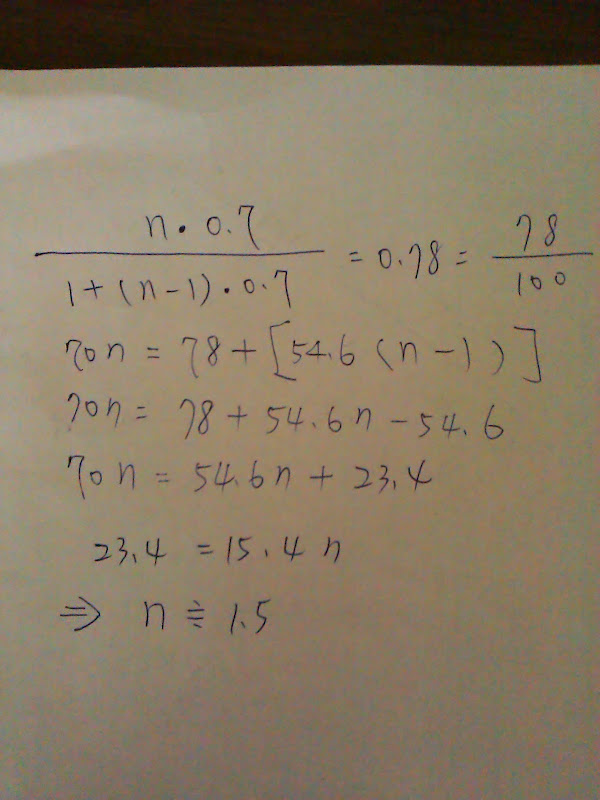 n · 0.7 / 1 + (n - 1) · 0.7 = 0.78 = 78 / 100
70n = 78 + [54.6 (n - 1)]
70n = 78 + 54.6n - 54.6
70n = 54.6n + 23.4
23.4 = 15.4 n
⇒ n ≑ 1.5